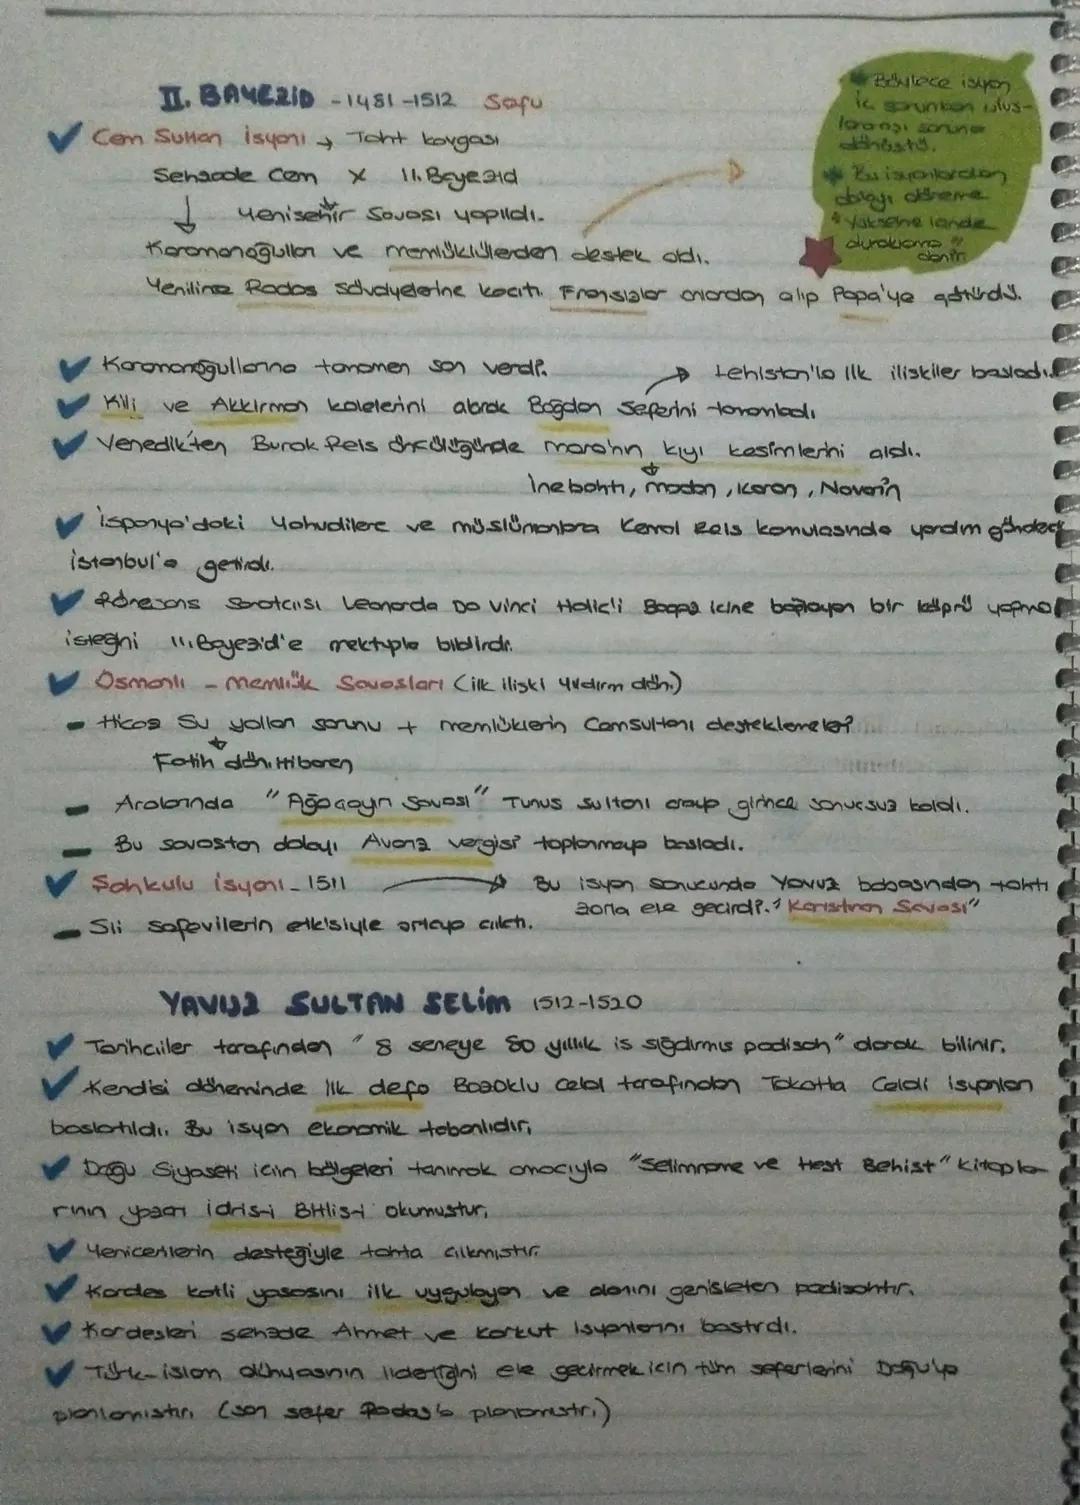 II. BAYEZİD - 1481-1512 Sofu
Cem Sultan İsyanı → Taht kavgası
Şehzade Cem X II. Beyezid
Yenişehir Savaşı yapıldı.
Karamanoğulları ve Memlüklülerden destek aldı.
Yenilince Rodos şövalyelerine kaçtı. Fransızlar onlardan alıp Papa'ya götürdü.
* Böylece isyan
iç sorundan ulus-
lararası soruna
dönüştü.
* Bu isyanlardan
dolayı döneme
"Yükselme içinde
duraklama"
denir.
Karamanoğullarına tamamen son verdi.
→ Lehistan'la ilk ilişkiler başladı.
Kili ve Akkirman kalelerini alarak Boğdan Seferini tamamladı
Venedik'ten Burak Reis öncülüğünde Mora'nın kıyı kesimlerini aldı.
İnebahtı, Modon, Koron, Navarin
İspanya'daki Yahudilere ve müslümanlara Kemal Reis komutasında yardım gönderip
İstanbul'a getirdi.
Rönesans sanatçısı Leonarda Da Vinci Haliç'i Boğaz içine bağlayan bir köprü yapma
isteğini II. Bayezid'e mektupla bildirdi.
Osmanlı - Memlük Savaşları (ilk ilişki Yıldırım dön.)
- Hicaz Su yolları sorunu + Memlüklerin Cemsultanı desteklemeleri
Fatih dön. itibaren
- Aralarında "Ağaçayırı Savaşı" Tunus sultanı araya girince sonuçsuz kaldı.
- Bu savaştan dolayı Avarız vergisi toplanmaya başladı.
Şahkulu isyanı - 1511 → Bu isyan sonucunda Yavuz babasından tahtı
zorla ele geçirdi. "Karıştıran Savaşı"
- Şii safevilerin etkisiyle ortaya çıktı.
YAVUZ SULTAN SELİM 1512-1520
Tarihciler tarafından "8 seneye 80 yıllık iş sığdırmış padişah" olarak bilinir.
Kendisi döneminde ilk defa Bozoklu Celal tarafından Tokatta Celali isyanları
başlatıldı. Bu isyan ekonomik tabanlıdır.
Doğu Siyaseti için bölgeleri tanımak amacıyla "Selimname ve Heşt Behişt" kitapla-
rının yazarı İdris-i Bitlis-i okumuştur.
Yeniçerilerin desteğiyle tahta çıkmıştır.
Kardeş katli yasasını ilk uygulayan ve alanını genişleten padişahtır.
Kardeşleri şehzade Ahmet ve Korkut isyanlarını bastırdı.
Türk-islam dünyasının liderliğini ele geçirmek için tüm seferlerini Doğu'ya
planlamıştır. (son sefer Rodos'a planlamıştır.)